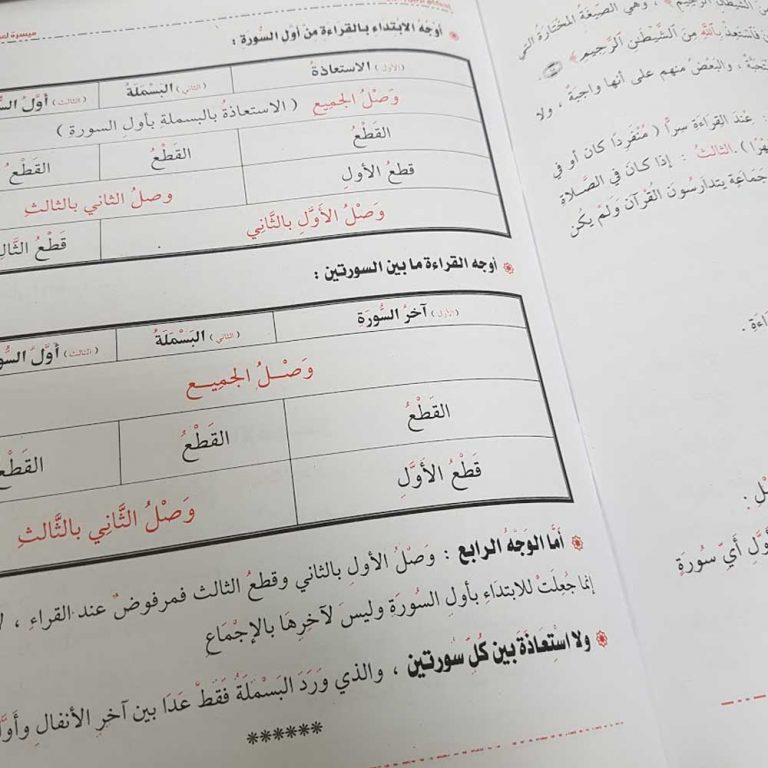 ميسرة
أوجه الابتداء بالقراءة من أول السورة :
(الأول) الاستعاذة (الثاني) البَسْمَلَةُ (الثالث) أوَّلُ
وَصْلُ الجميع ( الاستعاذةُ بالبسملة بأول السورة )
القَطْعُ القَطْعُ القَطْعُ
قطعُ الأولِ وصلُ الثاني بالثالثِ
وَصْلُ الأوَّلِ بالثَّانِي قَطْعُ
أوجه القراءة ما بين السورتين :
(الأول) آخرُ السُّورَة (الثاني) البَسْمَلَةُ (الثالث) أوَّلُ
وَصْلُ الجَمِيعِ
القَطْعُ القَطْعُ
قَطْعُ الأَوَّلِ وَصْلُ الثَّانِي بالثَّالثِ
أمَّا الوَجْهُ الرابع : وَصْلُ الأولِ بالثاني وقطعُ الثالث فمرفوضٌ عند القراءِ ،
إنما جُعِلَتْ للابتداءِ بأولِ السُورَةِ وليسَ لآخِرِهَا بالإجْمَاعِ
ولا اسْتِعَاذَةَ بين كُلِّ سُورتين ، والذي وَرَدَ البَسْمَلَةُ فَقَطْ عَدَا بين آخرِ الأنفالِ
******
، وهي الصيغةُ المختارةُ التي
مِنَ الشَّيْطَٰنِ الرَّجِيمِ
، والبَعْضُ منهم على أنها واجبةٌ ، ولا
: عِنْدَ القِراءَةِ سِراً ( مُنْفَرِدًا كانَ أو في
الثالثُ : إذا كانَ في الصَّلاةِ
جَمَاعَةٍ يتدارسُونَ القُرْآنَ وَلَمْ يكُن
أيِّ سُورَةٍ